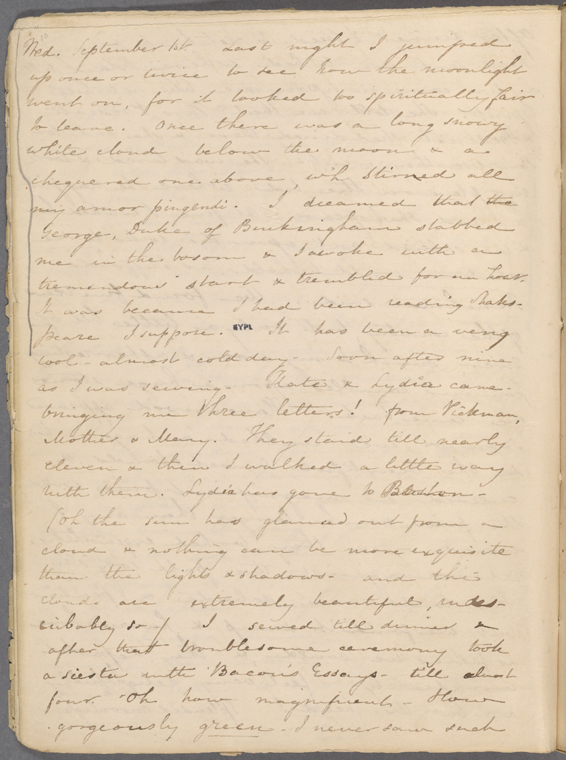 Wed. September 1st Last night I jumped
up once or twice to see how the moonlight
went on, for it looked too spiritually fair
to leave. Once there was a long snowy
white cloud below the moon & a
chequered one above, wh. stirred all
my amor pingendi. I dreamed that the
George, Duke of Buckingham stabbed
me in the bosom & I awoke with a
tremendous start & trembled for an hour.
It was because I had been reading Shaks-
peare I suppose. NYPL It has been a very
cool - almost cold day - Soon after nine
as I was sewing - Kate & Lydia came -
bringing me three letters! from
Mother & Mary. They staid till nearly
eleven & then I walked a little way
with them. Lydia has gone to
(oh the sun has glanced out from a
cloud & nothing can be more exquisite
than the light & shadows - and the
clouds are extremely beautiful, indes-
cribably so -) I sewed till dinner &
after that troublesome ceremony took
a siesta with Bacon's Essays - till almost
four. Oh how magnificent - How
gorgeously green. I never saw such